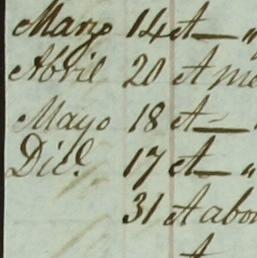 Marzo 14 A — "
Abril 20 A me
Mayo 18 A —
Dic.e 17 A — "
31 A abo
A